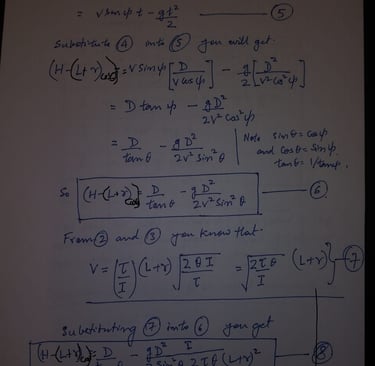 = v sin φ t - gt²/2 —— ⑤
Substitute ④ into ⑤ you will get.
(H-(L+r)cosθ) = v sin φ [D/(v cos φ)] - g/2 [D²/(v² cos² φ)]
= D tan φ - gD²/(2v² cos² φ)
= D/tan θ - gD²/(2v² sin² θ) | Note sin θ = cos φ
and cos θ = sin φ
tan θ = 1/tan φ.
So (H-(L+r)cosθ) = D/tan θ - gD²/(2v² sin² θ) —— ⑥
From ② and ③ you know that.
V = (τ/I) (L+r) √(2θI/τ) = √(2τθ/I) (L+r) } ⑦
Substituting ⑦ into ⑥ you get
(H-(L+r)cosθ) = D/tan θ - gD² I/(2 sin² θ 2τθ (L+r)²) —— ⑧